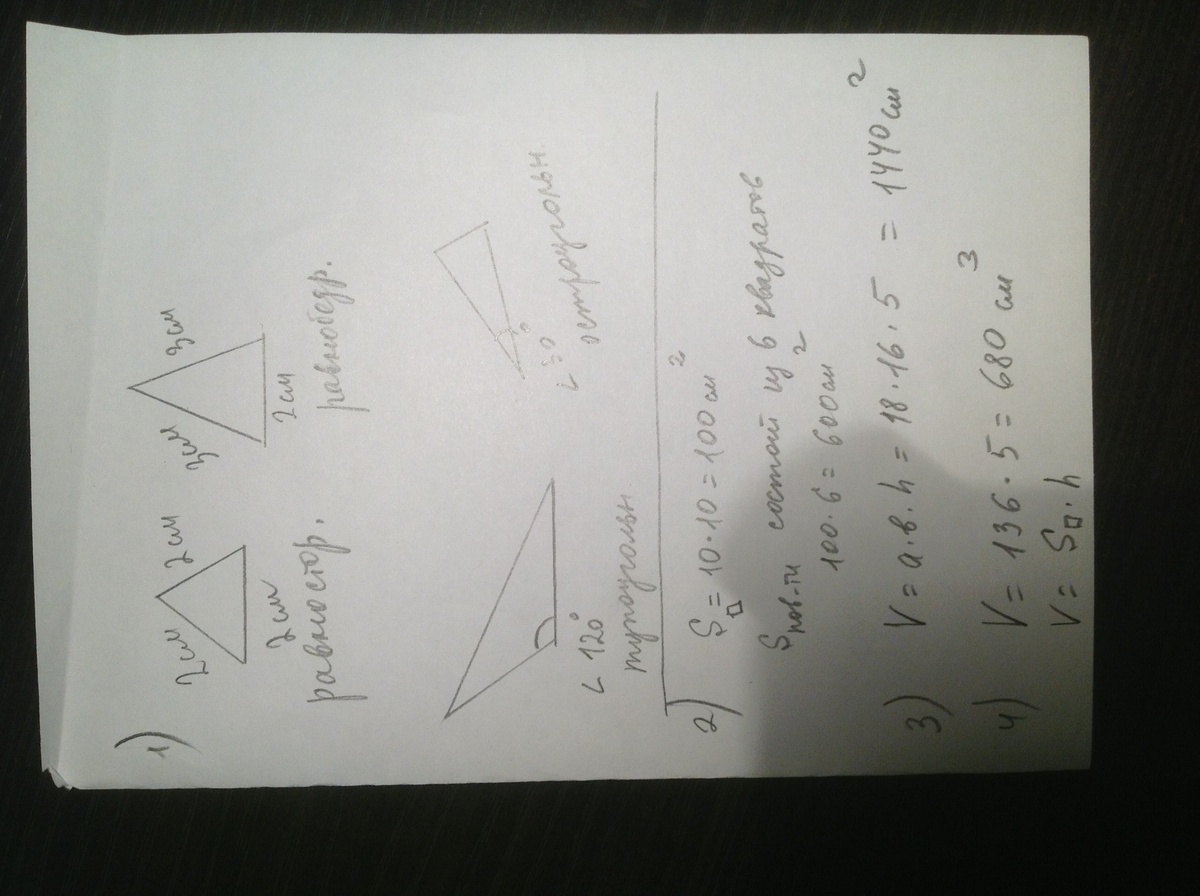 1)
2см 2см
2см
равностор.
3см 3см
2см
равнобедр.
∠ 120°
тупоугольн.
остроугольн.
2) S□ = 10·10 = 100 см²
Sпов-ти состоит из 6 квадратов
100·6 = 600 см²
3) V = a·в·h = 18·16·5 = 1440 см²
4) V = 136·5 = 680 см³
V = S□·h